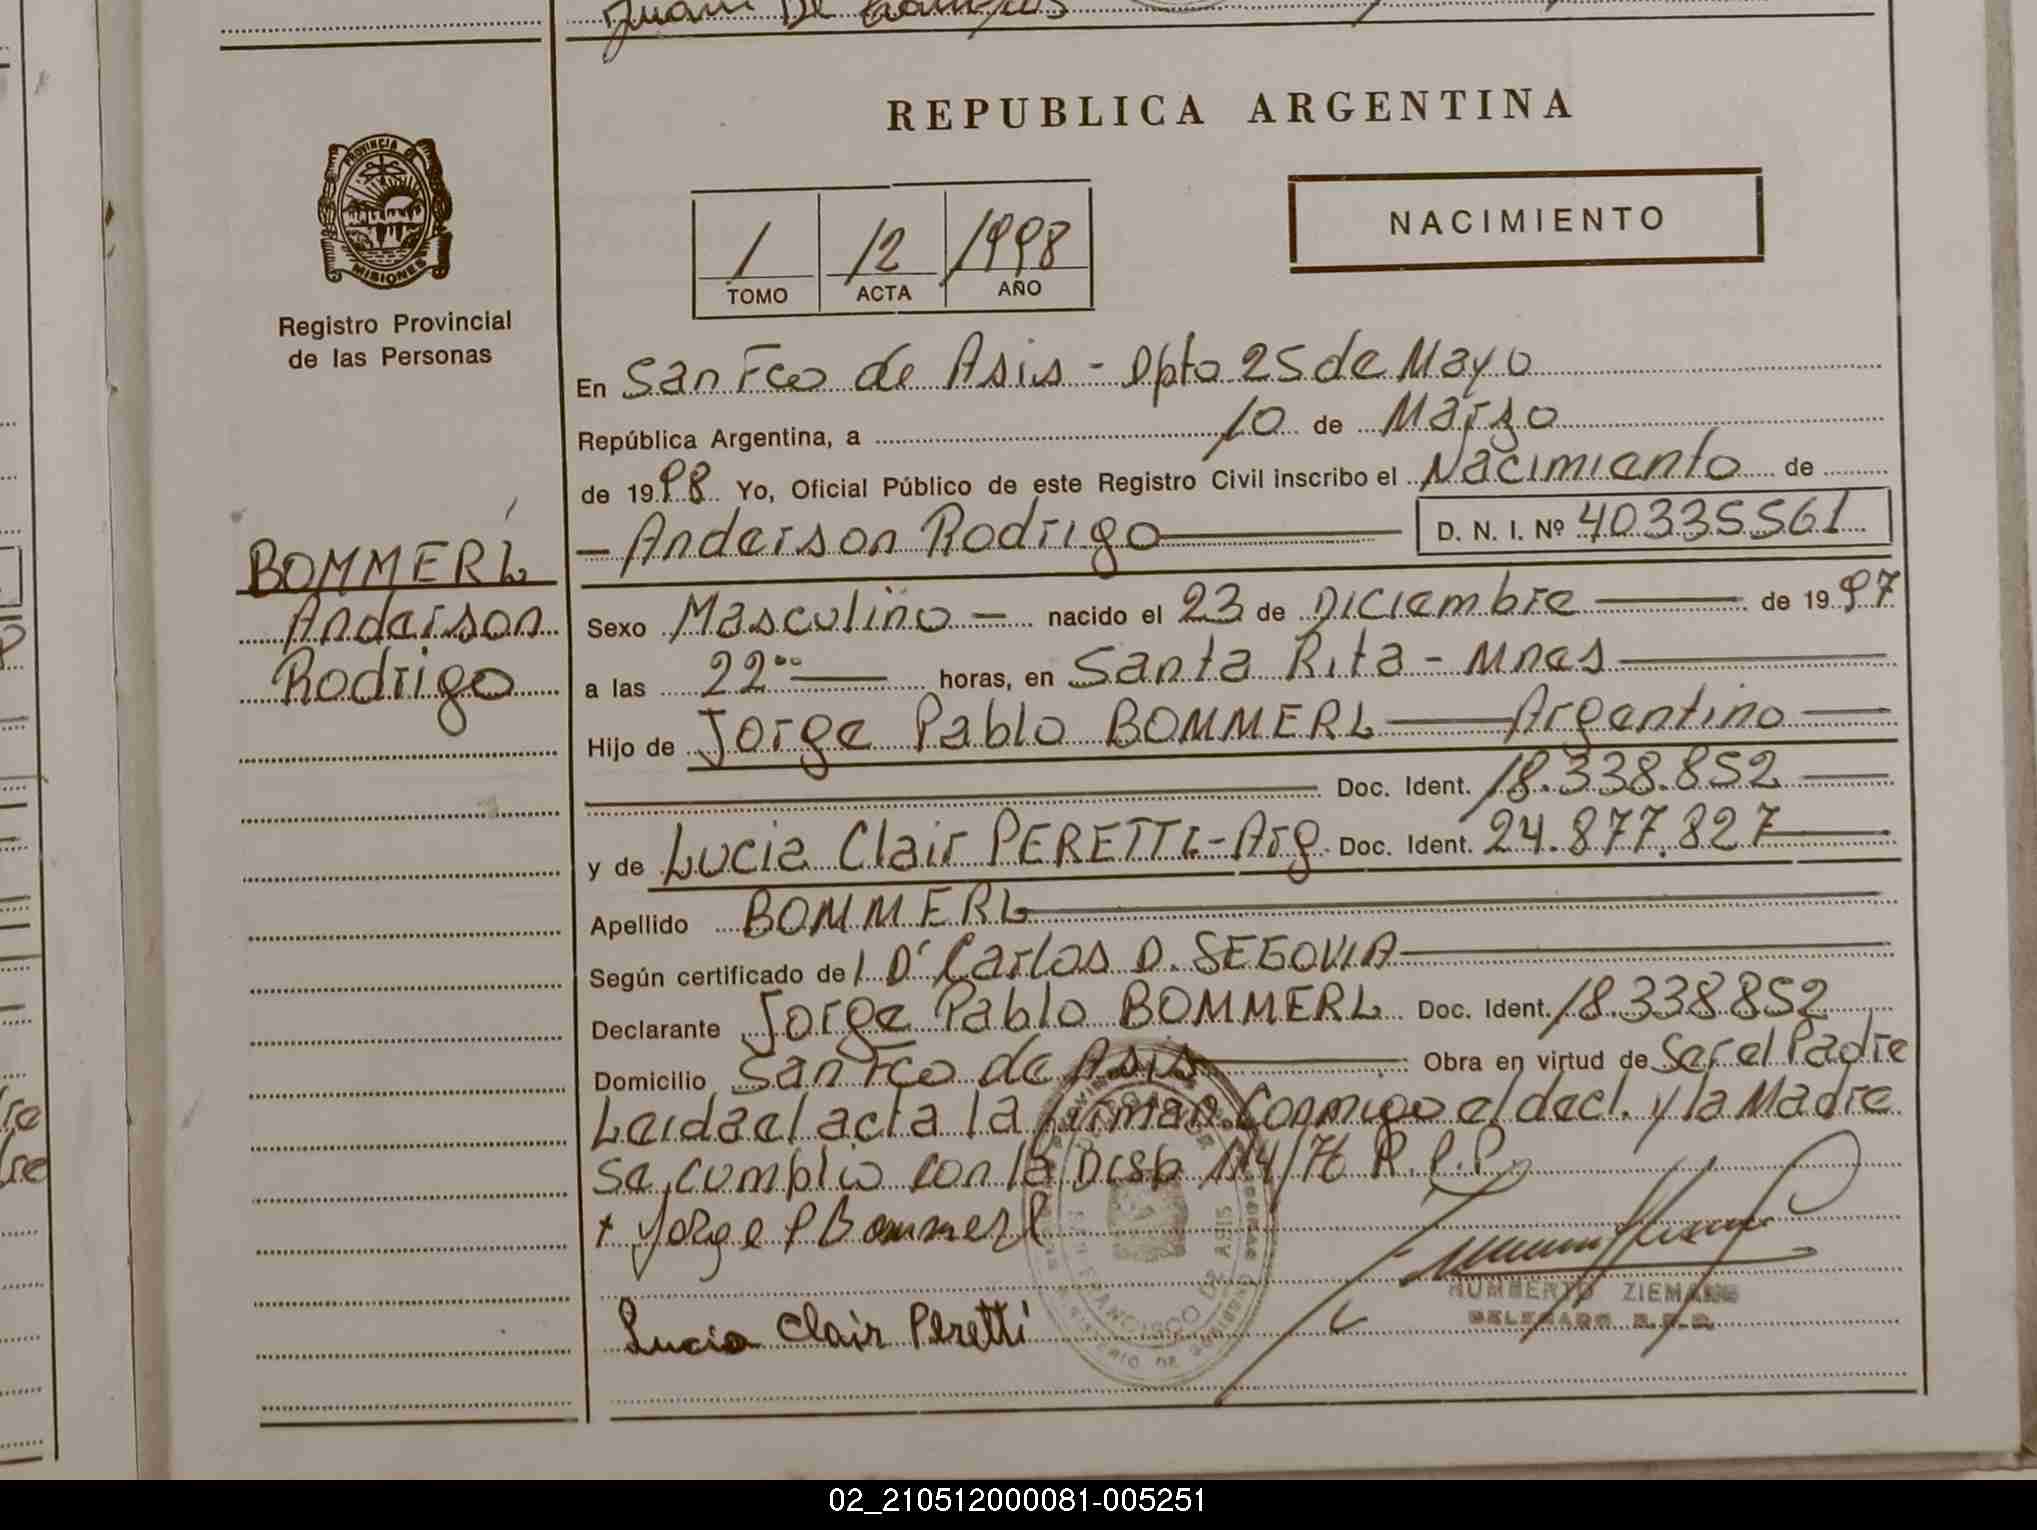 Juan
REPUBLICA ARGENTINA
PROVINCIA DE
MISIONES
Registro Provincial
de las Personas
NACIMIENTO
1 12 1998
TOMO ACTA AÑO
En San Fco de Asis - Dpto 25 de Mayo
República Argentina, a 10 de Marzo
de 1998 Yo, Oficial Público de este Registro Civil inscribo el Nacimiento de
- Anderson Rodrigo D. N. I. Nº 40335561
BOMMERL
Anderson
Rodrigo
Sexo Masculino - nacido el 23 de Diciembre de 1997
a las 22 00 horas, en Santa Rita - Mnes
Hijo de Jorge Pablo BOMMERL Argentino
Doc. Ident. 18.338.852
y de Lucia Clair PERETTI - Arg. Doc. Ident. 24.877.827
Apellido BOMMERL
Según certificado del Dr Carlos D. SEGOVIA
Declarante Jorge Pablo BOMMERL Doc. Ident. 18.338852
Domicilio San Fco de Asis Obra en virtud de Ser el Padre
Leida el acta la firman conmigo el decl. y la Madre
se cumplio con la Disp 114/76 R.P.P.
+ Jorge P Bommerl
HUMBERTO ZIEMANN
DELEGADO R.P.P.
Lucia Clair Peretti
02_210512000081-005251